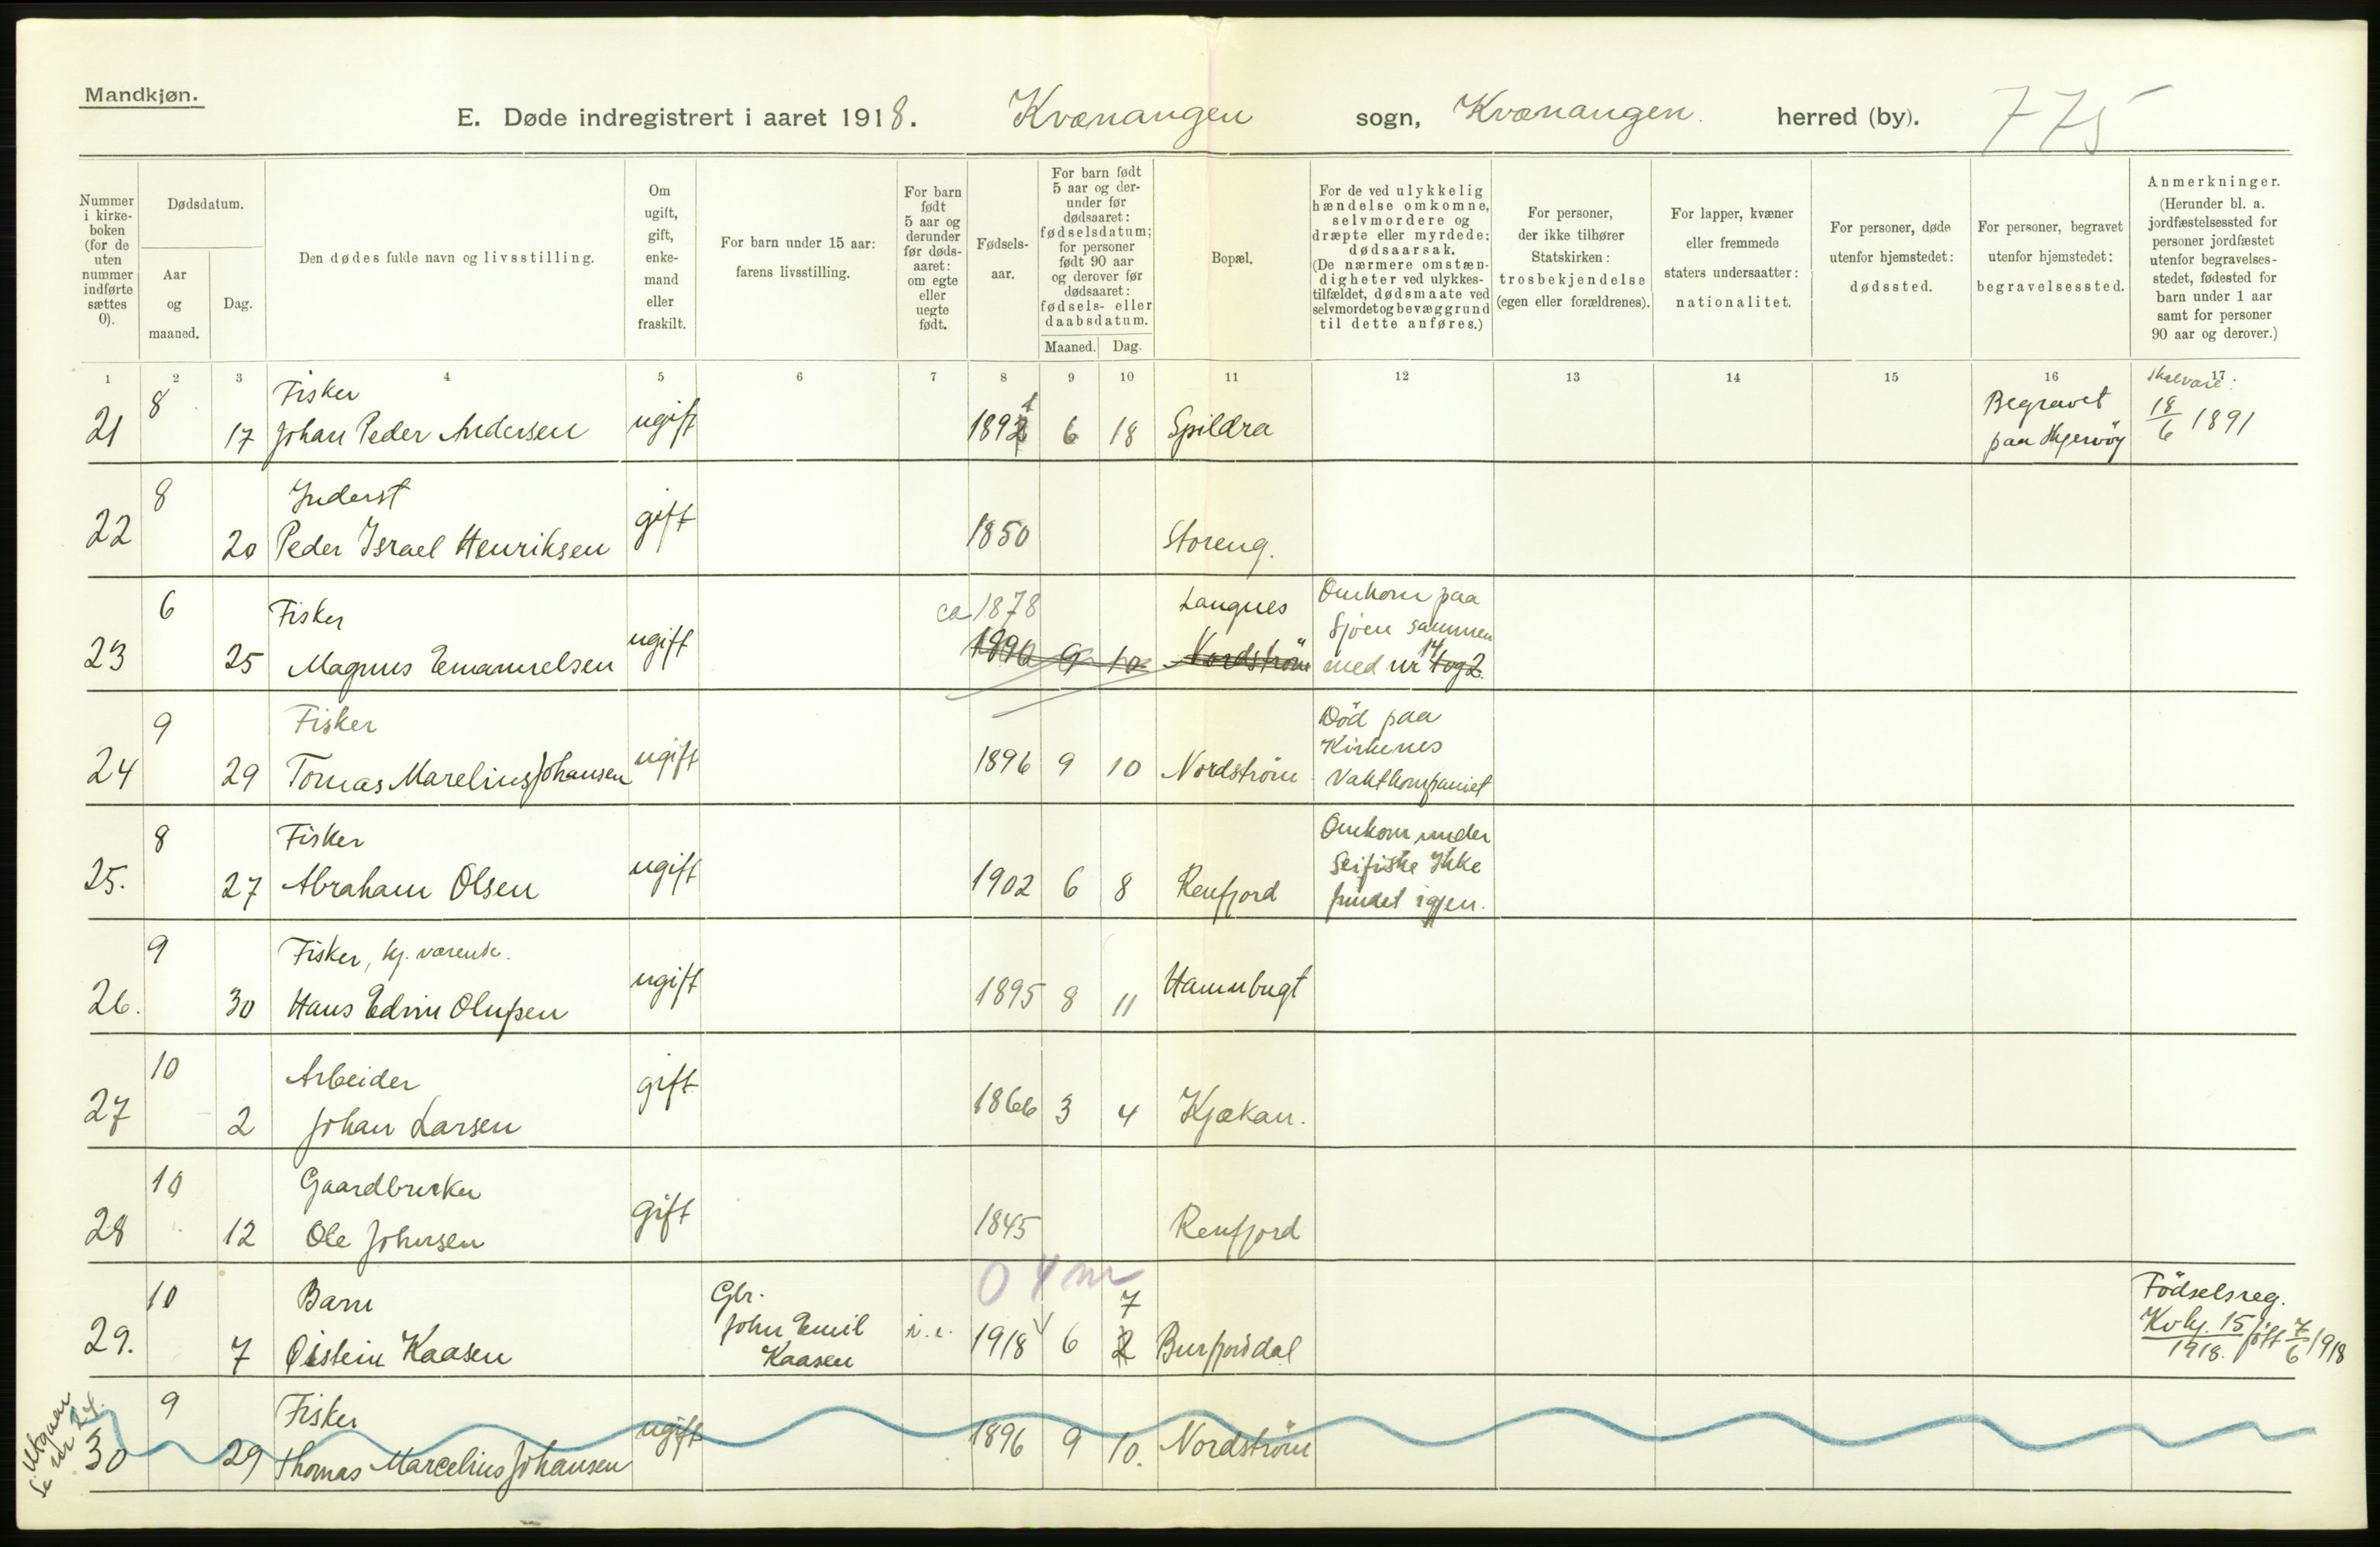 Mandkjøn.
E. Døde indregistrert i aaret 1918. Kvænangen sogn, Kvænangen. herred (by). 775
Nummer i kirke- boken (for de uten nummer indførte sættes 0).
Dødsdatum.
Aar og maaned.
Dag.
Den dødes fulde navn og livsstilling.
Om ugift, gift, enke- mand eller fraskilt.
For barn under 15 aar: farens livsstilling.
For barn født 5 aar og derunder før døds- aaret: om egte eller uegte født.
Fødsels- aar.
For barn født 5 aar og der- under før dødsaaret: fødselsdatum; for personer født 90 aar og derover før dødsaaret: fødsels- eller daabsdatum.
Maaned. Dag.
Bopæl.
For de ved ulykkelig hændelse omkomne, selvmordere og dræpte eller myrdede: dødsaarsak. (De nærmere omstæn- digheter ved ulykkes- tilfældet, dødsmaate ved selvmord et og bevæggrund til dette anføres.)
For personer, der ikke tilhører Statskirken: trosbekjendelse (egen eller forældrenes).
For lapper, kvæner eller fremmede staters undersaatter: nationalitet.
For personer, døde utenfor hjemstedet: dødssted.
For personer, begravet utenfor hjemstedet: begravelsessted.
Anmerkninger. (Herunder bl. a. jordfæstelsessted for personer jordfæstet utenfor begravelses- stedet, fødested for barn under 1 aar samt for personer 90 aar og derover.)
1 2 3 4 5 6 7 8 9 10 11 12 13 14 15 16 17
21 8 17 Fisker
Johan Peder Andersen ugift 1892 1 6 18 Spildra Begravet
paa Skjervöy
Skal være:
18/6 1891
22 8 20 Inderst
Peder Israel Henriksen gift 1850 Storeng.
23 6 25 Fisker
Magnus Emanuelsen ugift ca 1878 Langnes
1896 9 10 Nordström
Omkom paa
Sjöen sammen
med nr 14 1 og 2.
24 9 29 Fisker
Tomas Marelius Johansen ugift 1896 9 10 Nordström
Död paa
Kirkenes
Vaktkompaniet
25. 8 27 Fisker
Abraham Olsen ugift 1902 6 8 Renfjord
Omkom under
Seifiske Ikke
fundet igjen.
26. 9 30 Fisker,
Hans Edvin Olufsen ugift 1895 8 11 Hamnbugt
27 10 2 Arbeider
Johan Larsen gift 1866 3 4 Kjækan.
28 10 12 Gaardbruker
Ole Johnsen gift 1845 Renfjord
0 4 m
29. 10 7 Barn
Öistein Kaasen
Gbr.
John Emil
Kaasen
1918 6 2 7 Burfjorddal
Födselsreg.
Kvkj. 15
1918. föft 7/6 1918
30 9 29 Fisker
Thomas Marcelius Johansen ugift 1896 9 10. Nordström
Utgaar
Se nr 24.